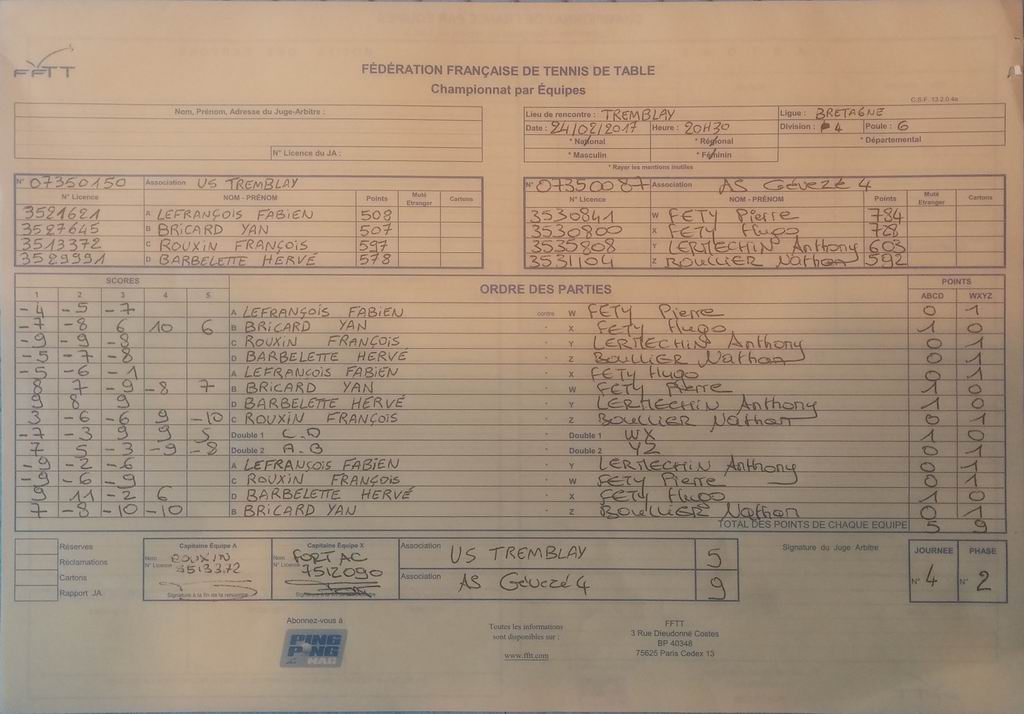 FFTT
FÉDÉRATION FRANÇAISE DE TENNIS DE TABLE
Championnat par Équipes
C.S.F. 13.2.0 4a
Nom, Prénom, Adresse du Juge-Arbitre :
N° Licence du JA :
Lieu de rencontre : TREMBLAY Ligue : BRETAGNE
Date : 24/02/2017 Heure : 20H30 Division : 4 Poule : 6
* National * Régional * Départemental
* Masculin * Féminin
* Rayer les mentions inutiles
N° 07350150 Association US TREMBLAY
N° Licence NOM - PRÉNOM Points Muté Etranger Cartons
3521621 A LEFRANÇOIS FABIEN 508
3527645 B BRICARD YAN 507
3513372 C ROUXIN FRANÇOIS 597
3529991 D BARBELETTE HERVÉ 578
N° 07350087 Association AS Gévezé 4
N° Licence NOM - PRÉNOM Points Muté Etranger Cartons
3530841 W FETY Pierre 784
3530800 X FETY Hugo 728
3535808 Y LERMECHIN Anthony 603
3531104 Z BOULLIER Nathan 592
SCORES ORDRE DES PARTIES POINTS
1 2 3 4 5 ABCD WXYZ
-4 -5 -7 A LEFRANÇOIS FABIEN contre W FETY Pierre 0 1
-7 -8 6 10 6 B BRICARD YAN - X FETY Hugo 1 0
-9 -9 -8 C ROUXIN FRANÇOIS - Y LERMECHIN Anthony 0 1
-5 -7 -8 D BARBELETTE HERVÉ - Z BOULLIER Nathan 0 1
-5 -6 -1 A LEFRANCOIS FABIEN - X FETY Hugo 0 1
8 7 -9 -8 7 B BRICARD YAN - W FETY Pierre 1 0
9 8 9 D BARBELETTE HERVÉ - Y LERMECHIN Anthony 1 0
3 -6 -6 9 -10 C ROUXIN FRANÇOIS - Z BOULLIER Nathan 0 1
-7 -3 9 9 5 Double 1 C.D Double 1 WX 1 0
7 5 -3 -9 -8 Double 2 A.B Double 2 YZ 0 1
-9 -2 -6 A LEFRANÇOIS FABIEN - Y LERMECHIN Anthony 0 1
-9 -6 -9 C ROUXIN FRANÇOIS - W FETY Pierre 0 1
9 11 -2 6 D BARBELETTE HERVÉ - X FETY Hugo 1 0
7 -8 -10 -10 B BRICARD YAN - Z BOULLIER Nathan 0 1
TOTAL DES POINTS DE CHAQUE EQUIPE 5 9
Réserves
Réclamations
Cartons
Rapport JA
Capitaine Equipe A
Nom ROUXIN
N° Licence 3513372
Signature à la fin de la rencontre
Capitaine Equipe X
Nom FORTAC
N° Licence 7512090
Association US TREMBLAY 5
Association AS Gévezé 4 9
Signature du Juge Arbitre
JOURNEE PHASE
N° 4 N° 2
Abonnez-vous à
PING PONG MAG
Toutes les informations
sont disponibles sur :
www.fftt.com
FFTT
3 Rue Dieudonné Costes
BP 40348
75625 Paris Cedex 13